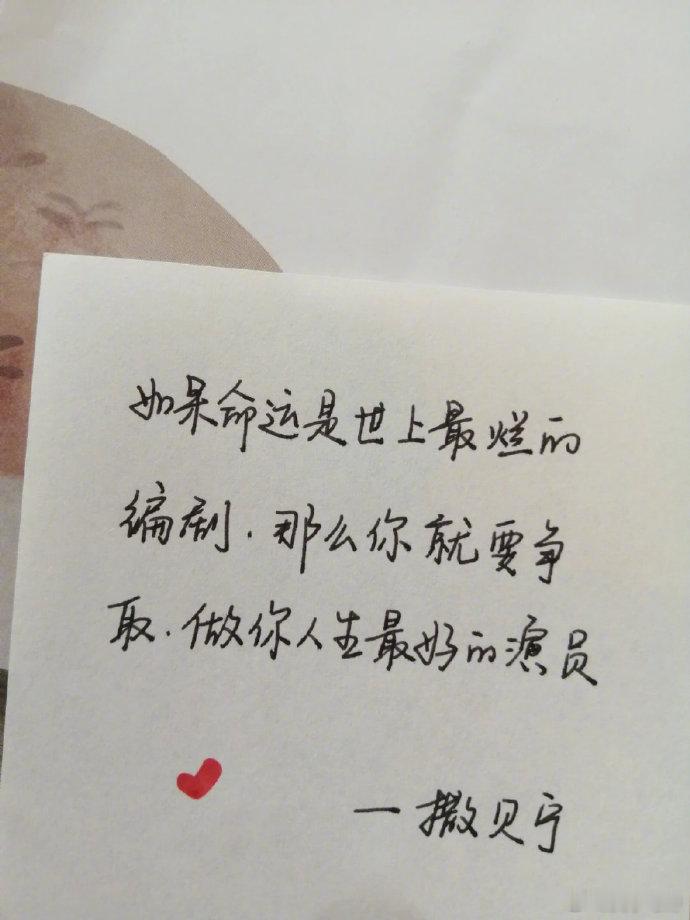 如果命运是世上最烂的
编剧.那么你就要争
取.做你人生最好的演员
一撒贝宁